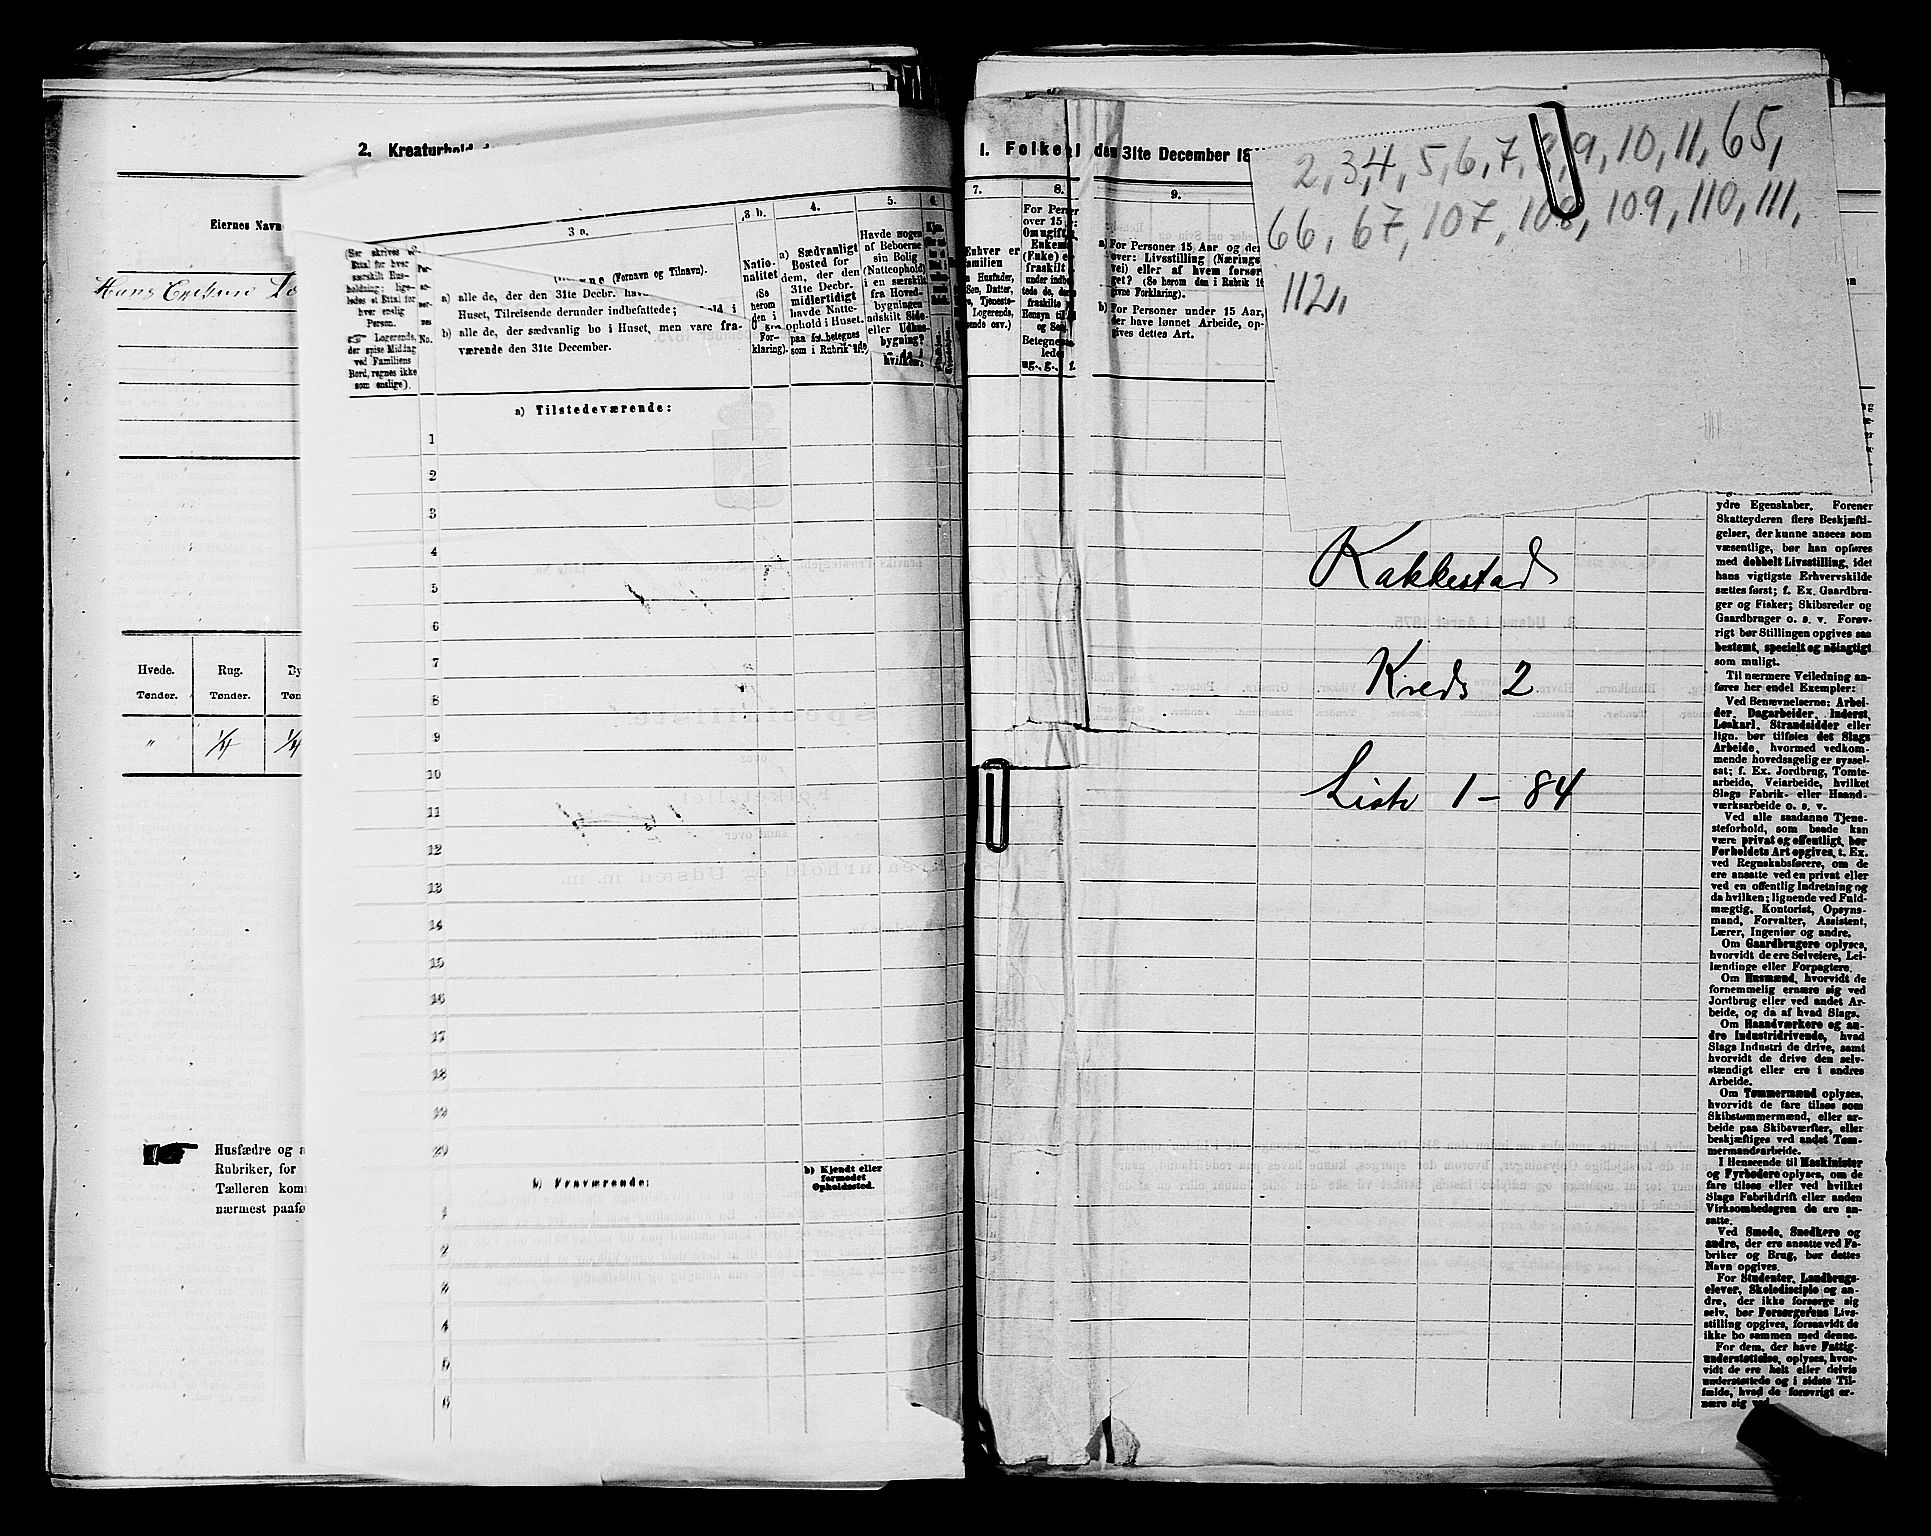 2. Kreaturhold
Eiernes Navn
Hans
Hvede.
Rug.
Tønder.
Tønder.
"
1/4
1/4
Husfædre og
Rubriker, for
Tælleren
nærmest
3 a.
3 b.
4.
5.
6.
(Her skrives et
Ettal for hver
særskilt Hus-
holdning; lige-
ledes et Ettal for
hver enslig
Person.
☞ Logerende,
der spise Middag
ved Familiens
Bord, regnes ikke
som enslige).
No.
(Fornavn og Tilnavn).
a) alle de, der den 31te Decbr.
Huset, Tilreisende derunder indbefattede;
b) alle de, der sædvanlig bo i Huset, men vare fra-
værende den 31te December.
Natio-
nalitet
(Se
herom
den i
For-
klaring).
a) Sædvanligt
Bosted for
dem, der den
31te Decbr.
midlertidigt
havde Natte-
ophold i Huset.
som i Rubrik
Havde nogen
af Beboerne
sin Bolig
(Natteophold)
i en særskilt
fra Hoved-
bygningen
adskilt Side-
eller Udhus-
bygning?
hvilken?
a) Tilstedeværende:
1
2
3
4
5
6
7
8
9
10
11
12
13
14
15
16
17
18
19
20
b) Fraværende:
b) Kjendt eller
formodet
Opholdssted.
1
2
3
4
5
6
1. Folke
den 31te December 18
7.
8.
9.
Enhver er
Familien
Husfader,
Søn, Datter,
Tjeneste-
Logerende,
osv.)
For Per
over 15
Om ugift,
Enkem
(Enke) e
fraskilt
ug., g.,
f.
a) For Personer 15 Aar og der-
over: Livsstilling (Nærings-
vei) eller af hvem forsør-
get? (Se herom den i Rubrik 1
givne Forklaring).
b) For Personer under 15 Aar,
der have lønnet Arbeide, op-
gives dettes Art.
2, 3, 4, 5, 6, 7, 8, 9, 10, 11, 65,
66, 67, 107, 108, 109, 110, 111,
112,
Rakkestad
Kreds 2
Liste 1 - 84
ydre Egenskaber. Forener
Skatteyderen flere Beskjæfti-
gelser, der kunne ansees som
væsentlige, bør han opføres
med dobbelt Livsstilling, idet
hans vigtigste Erhvervskilde
sættes først; f. Ex. Gaardbru-
ger og Fisker; Skibsreder og
Gaardbruger o. s. v. Forøv-
rigt bør Stillingen opgives saa
bestemt, specielt og nøiagtigt
som muligt.
Til nærmere Veiledning an-
føres her endel Exempler:
Ved Benævnelserne: Arbei-
der, Dagarbeider, Inderst,
Løskarl, Strandsidder eller
lign. bør tilføies det Slags
Arbeide, hvormed vedkom-
mende hovedsagelig er syssel-
sat; f. Ex. Jordbrug, Tomte-
arbeide, Veiarbeide, hvilket
Slags Fabrik- eller Haand-
værksarbeide o. s. v.
Ved alle saadanne Tjene-
steforhold, som baade kan
være privat og offentligt, bør
Forholdets Art opgives, t. Ex.
ved Regnskabsførere, om de
ere ansatte ved en privat eller
ved en offentlig Indretning og
da hvilken; lignende ved Fuld-
mægtig, Kontorist, Opsyns-
mand, Forvalter, Assistent,
Lærer, Ingeniør og andre.
Om Gaardbrugere oplyses,
hvorvidt de ere Selveiere, Lei-
lændinge eller Forpagtere.
Om Husmænd, hvorvidt de
fornemmelig ernære sig ved
Jordbrug eller ved andet Ar-
beide, og da af hvad Slags.
Om Haandværkere og an-
dre Industridrivende, hvad
Slags Industri de drive, samt
hvorvidt de drive den selv-
stændigt eller ere i andres
Arbeide.
Om Tømmermænd oplyses,
hvorvidt de fare tilsøs som
Skibstømmermænd, eller ar-
beide paa Skibsværfter, eller
beskjæftiges ved andet Tøm-
mermandsarbeide.
I Henseende til Maskinister
og Fyrbødere oplyses, om de
fare tilsøs eller ved hvilket
Slags Fabrikdrift eller anden
Virksomhedsgren de ere an-
satte.
Ved Smede, Snedkere og
andre, der ere ansatte ved Fa-
briker og Brug, bør dettes
Navn opgives.
For Studenter, Landbrugs-
elever, Skoledisciple og an-
dre, der ikke forsørge sig
selv, bør Forsørgerens Livs-
stilling opgives, forsaavidt de
ikke bo sammen med denne.
For dem, der have Fattig-
understøttelse, oplyses, hvor-
vidt de ere helt eller delvis
understøttede og i sidste Til-
fælde, hvad de forøvrigt er-
nære sig ved.